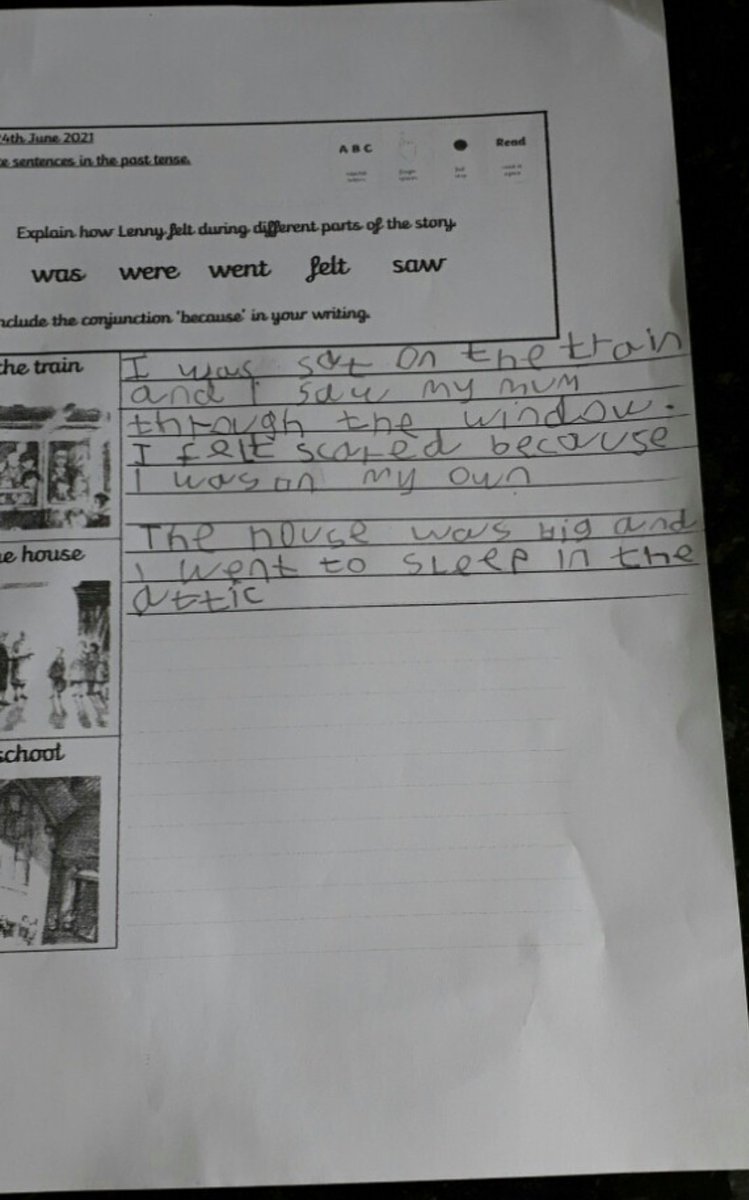 4th June 2021
e sentences in the past tense.
A B C
Read
Explain how Lenny felt during different parts of the story
was were went felt saw
nclude the conjunction 'because' in your writing.
he train
I was sat on the train
and I saw my mum
through the window.
I felt scared because
I was on my own
e house
The house was big and
I went to sleep in the
attic
school